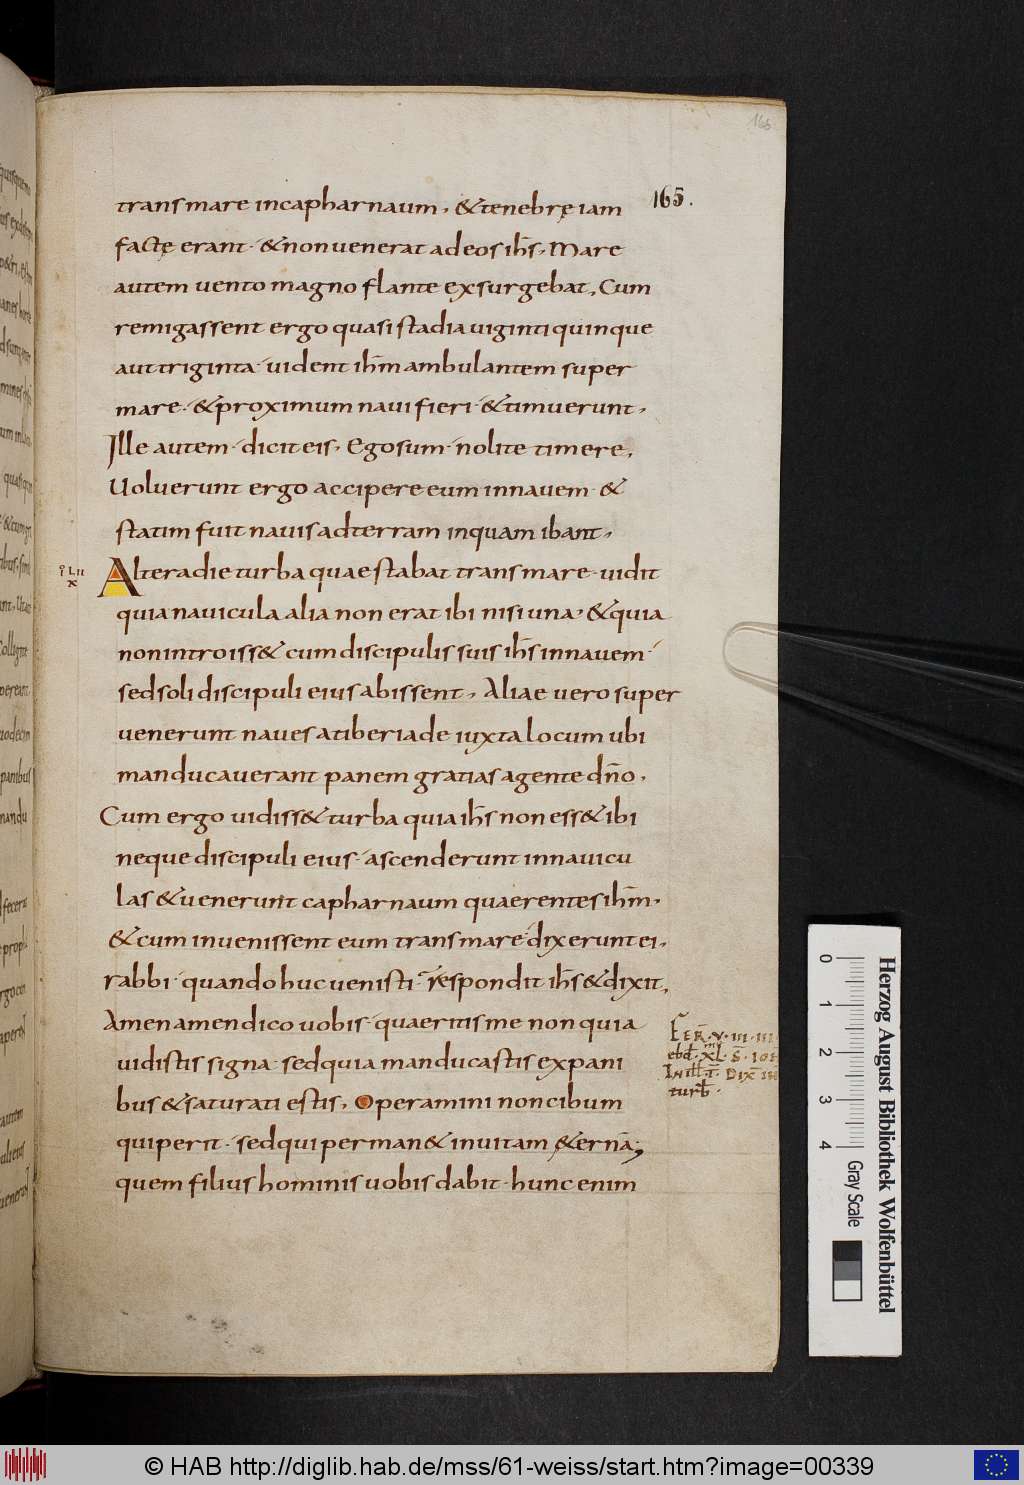 165
165.
trans mare incapharnaum, & tenebrę iam
factę erant · & non venerat ad eos ih̄s, Mare
autem vento magno flante exsurgebat, Cum
remigassent ergo quasi stadia uiginti quinque
aut triginta · uident ih̄m ambulantem super
mare · & proximum naui fieri · & timuerunt,
Ille autem · dicit eis, Ego sum · nolite timere,
Uoluerunt ergo accipere eum in nauem · &
statim fuit nauis ad terram in quam ibant,
LII
X
Altera die turba quae stabat trans mare · uidit
quia nauicula alia non erat ibi nisi una, & quia
non introiss& cum discipulis suis ih̄s in nauem ·
sed soli discipuli eius abissent, Aliae uero super
uenerunt naues a tiberiade iuxta locum ubi
manducauerant panem gratias agente dn̄o,
Cum ergo uidiss& turba quia ih̄s non ess& ibi
neque discipuli eius · ascenderunt in nauicu
las & uenerunt capharnaum quaerentes ih̄m,
& cum inuenissent eum trans mare · dixerunt ei,
rabbi · quando huc uenisti · respondit ih̄s & dixit,
Amen amen dico uobis · quaeritis me non quia
uidistis signa · sed quia manducastis ex pani
bus & saturati estis, Operamini non cibum
qui perit · sed qui perman& in uitam &ernā;
quem filius hominis uobis dabit · hunc enim
FER̄ · V · III ·
ebd̄ · XL · S̄ · IOH
IN ill̄ · T̄ · DIX̄ IH̄
turb̄ ·
0 1 2 3 4
Gray Scale
Herzog August Bibliothek Wolfenbüttel
© HAB http://diglib.hab.de/mss/61-weiss/start.htm?image=00339